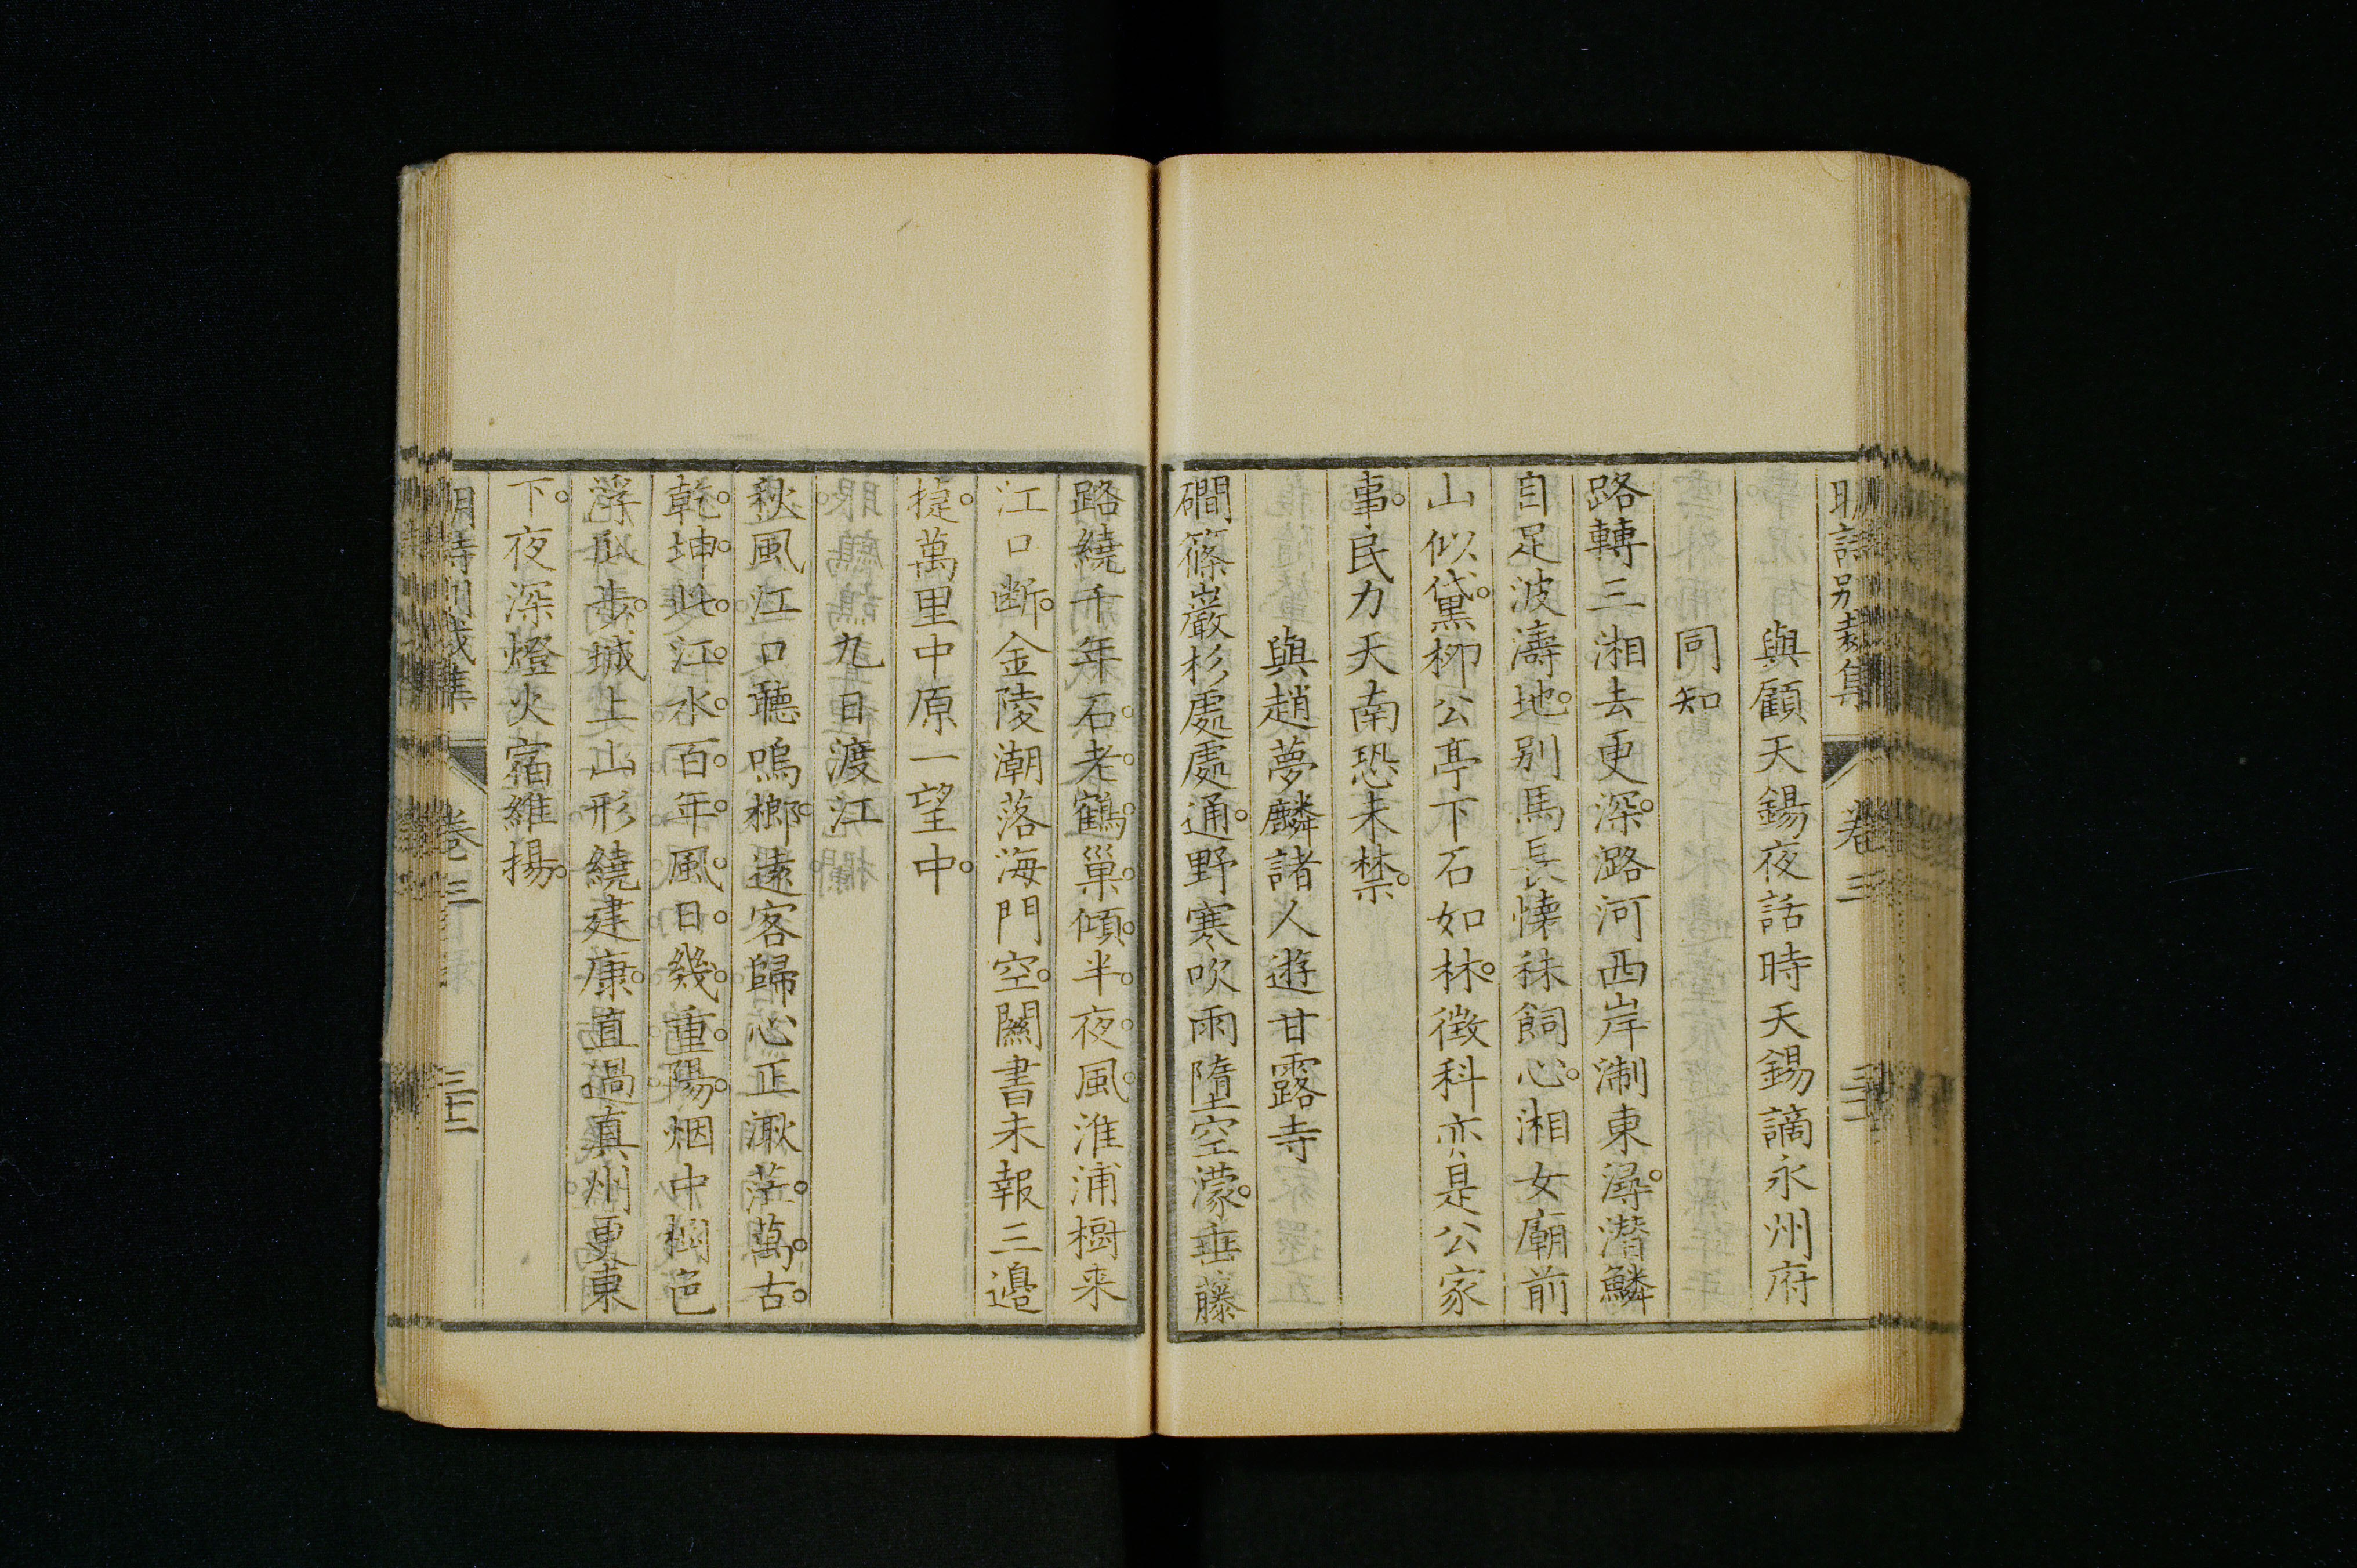 與顧天錫夜話時天錫謫永州府
同知
路轉三湘去更深。潞河西岸淛東潯。潛鱗
自足波濤地。别馬長懐秣飼心。湘女廟前
山似黛。柳公亭下石如林。徴科亦是公家
事。民力天南恐未禁。
與趙夢麟諸人遊甘露寺
礀篠巖杉處處通。野寒吹雨墮空濛。垂藤
路繞千年石。老鶴巢傾半夜風。淮浦樹来
江口斷。金陵潮落海門空。關書未報三邊
捷。萬里中原一望中。
九日渡江
秋風江口聽鳴榔。遠客歸心正渺茫。萬古
乾坤此江水。百年風日幾重陽。烟中樹色
浮瓜步。城上山形繞建康。直過真州更東
下。夜深燈火宿維揚。
卷三
三十二